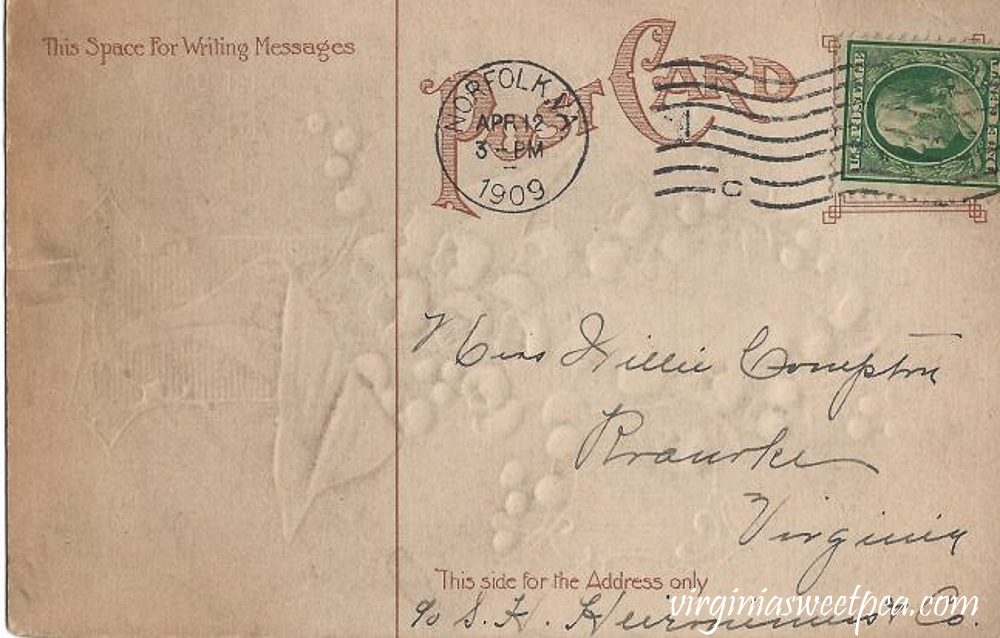 This Space For Writing Messages
POST CARD
NORFOLK, VA
APR 12
3 - PM
1909
1
C
Miss Compton
Roanoke
Virginia
This side for the Address only
c/o S. H. Heironimus & Co.
virginiasweetpea.com